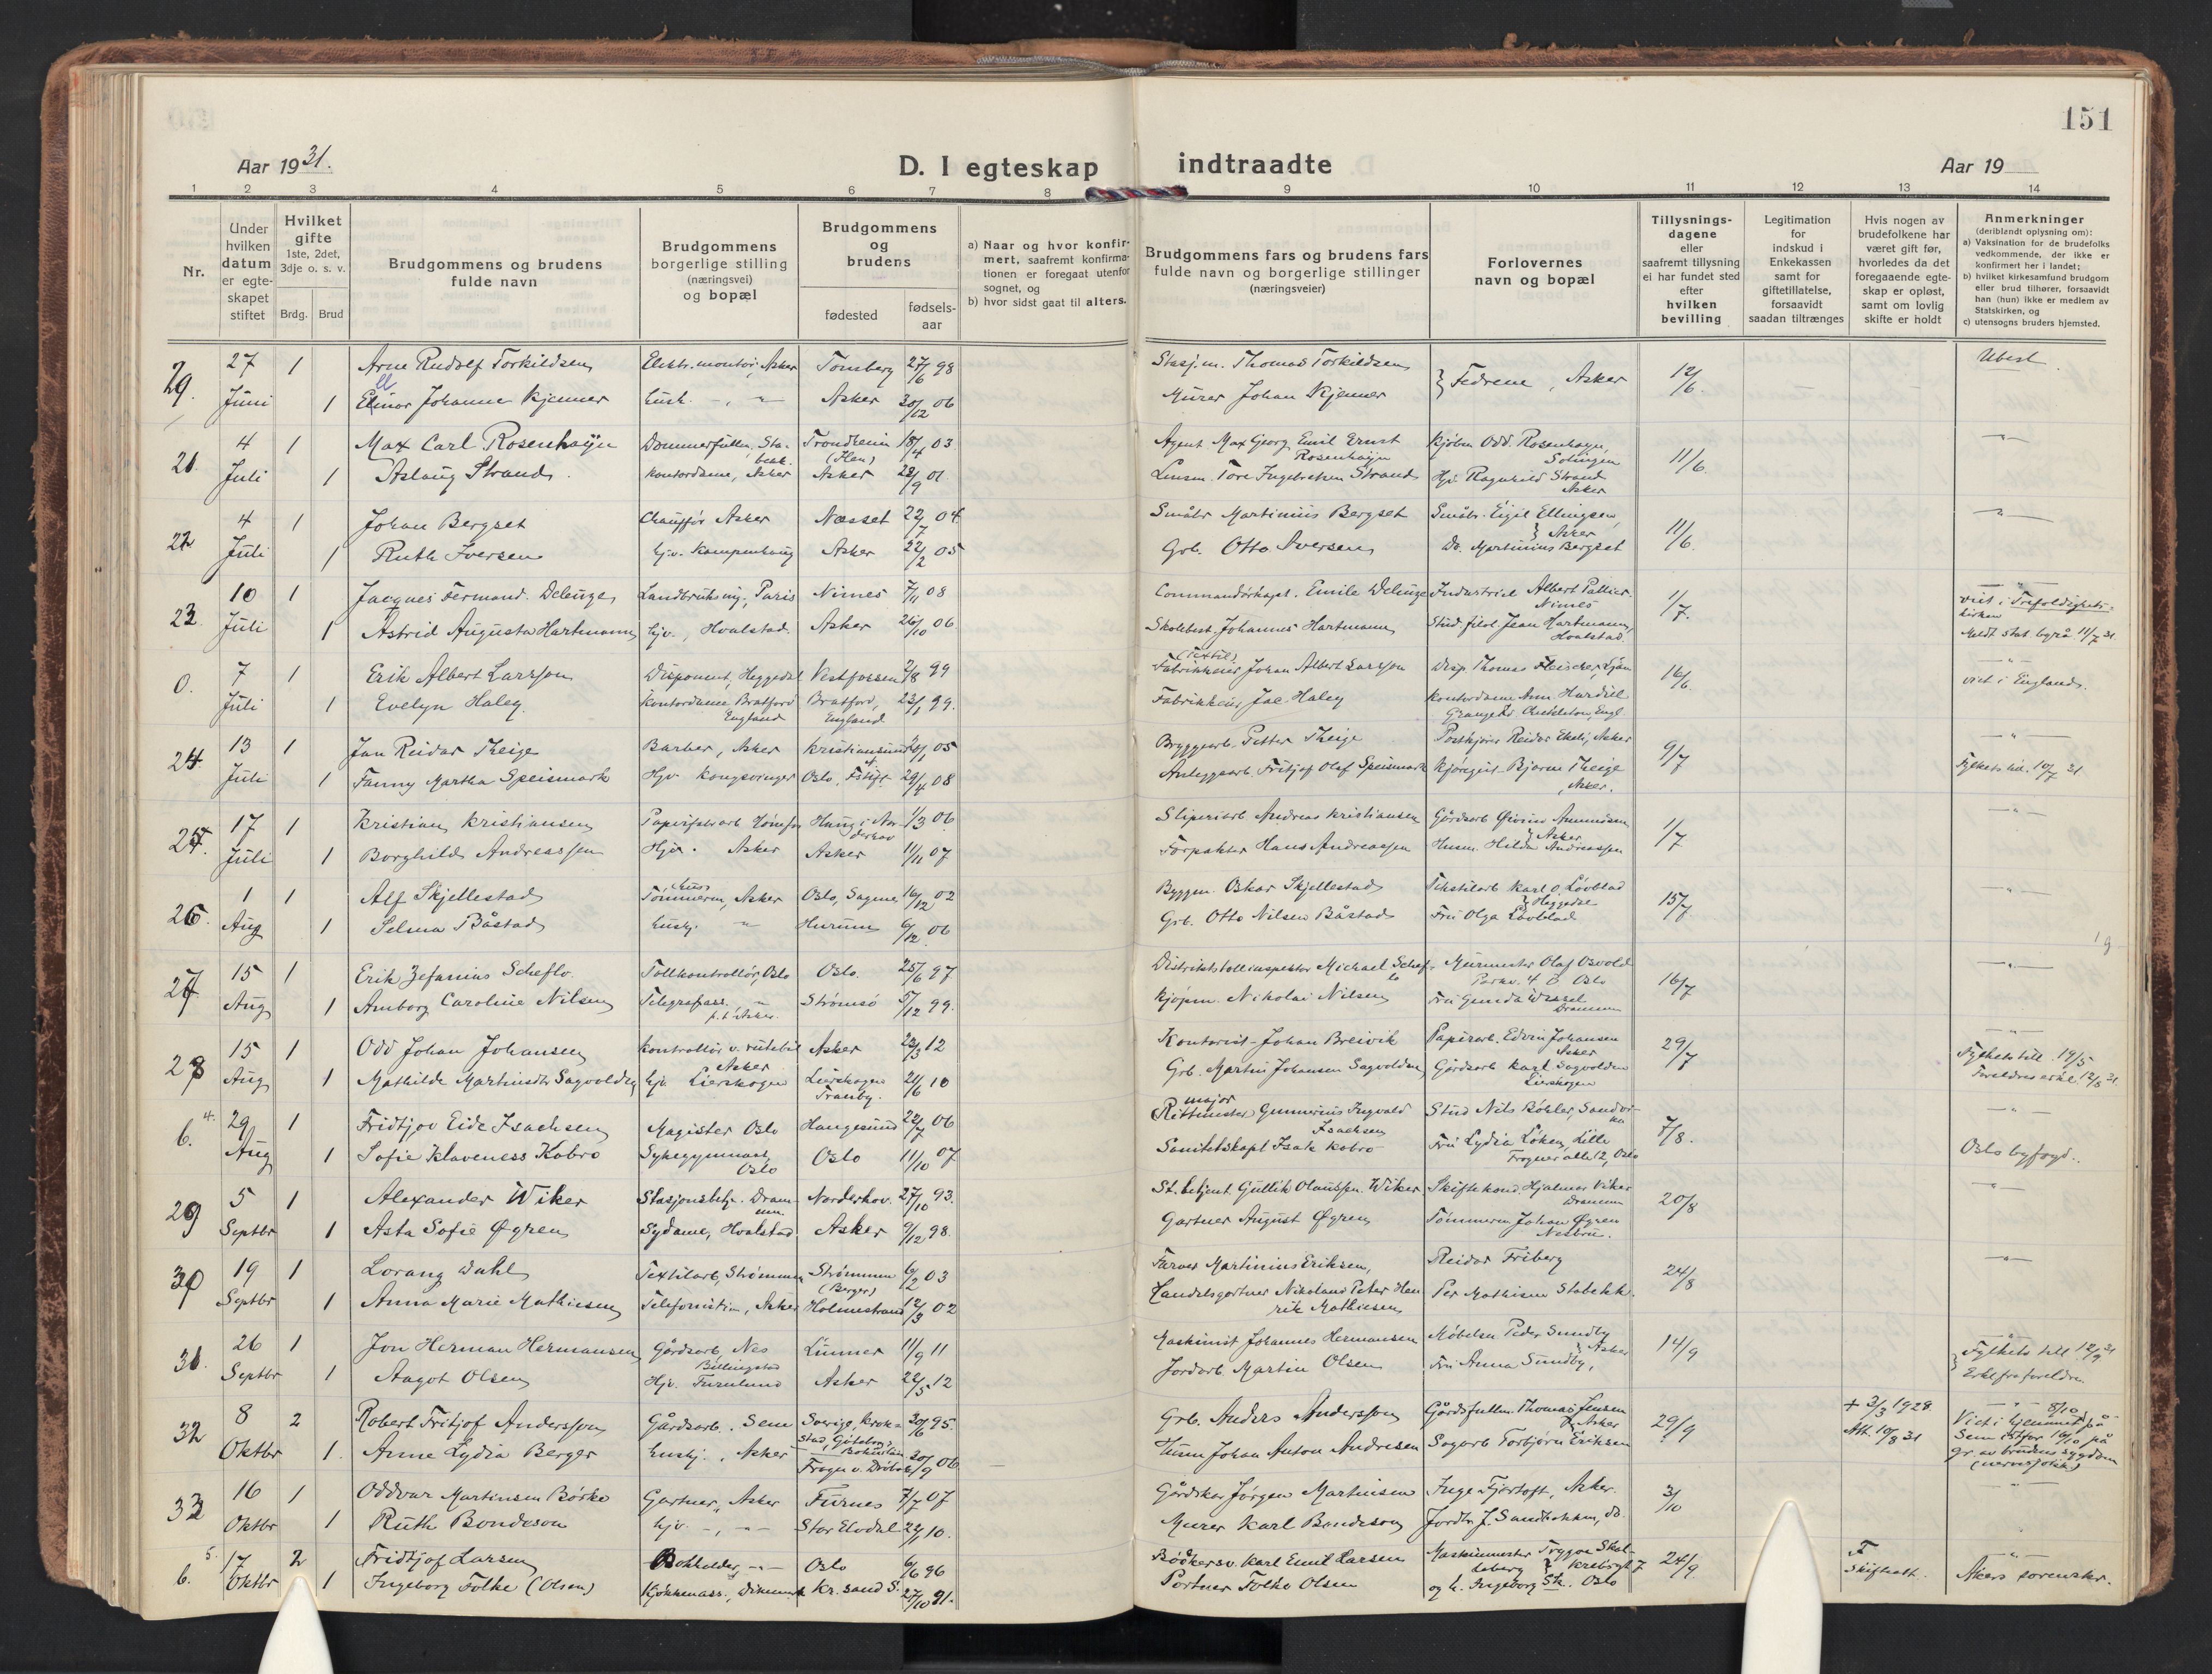 151
Aar 1931.
D. I egteskap indtraadte
Aar 19
1 2 3 4 5 6 7 8 9 10 11 12 13 14
Nr.
Under hvilken datum er egteskapet stiftet
Hvilket gifte 1ste, 2det, 3dje o. s. v.
Brdg. Brud
Brudgommens og brudens fulde navn
Brudgommens borgerlige stilling (næringsvei) og bopæl
Brudgommens og brudens
fødested
fødselsaar
a) Naar og hvor konfirmert, saafremt konfirmationen er foregaat utenfor sognet, og
b) hvor sidst gaat til alters.
Brudgommens fars og brudens fars fulde navn og borgerlige stillinger (næringsveier)
Forlovernes navn og bopæl
Tillysningsdagene eller saafremt tillysning ei har fundet sted efter hvilken bevilling
Legitimation for indskud i Enkekassen samt for giftetillatelse, forsaavidt saadan tiltrænges
Hvis nogen av brudefolkene har været gift før, hvorledes da det foregaaende egteskap er opløst, samt om lovlig skifte er holdt
Anmerkninger (deriblandt oplysning om):
a) Vaksination for de brudefolks vedkommende, der ikke er konfirmert her i landet;
b) hvilket kirkesamfund brudgom eller brud tilhører, forsaavidt han (hun) ikke er medlem av Statskirken, og
c) utensogns bruders hjemsted.
27 1 Arne Rudolf Torkildsen Elektr. montør, Asker Tønsberg 27/6 98 Stasj.m. Thomas Torkildsen Fedrene, Asker 12/6. Ubest.
Juni 1 Ellinor Johanne Kjenner Hush. -"- Asker 30/12 06 Murer Johan Kjenner
21. 4 1 Max Carl Rosenhayn Trondheim 18/4 03 Agent Max Georg Emil Ernst Rosenhayn Kjøbm. Odd. Rosenhayn, Solingen 11/6. -"-
Juli 1 Aslaug Strand. Kontordame, Asker Asker 28/9 01 Lensm. Tore Ingebretsen Strand Hjv. Ragnhild Strand Asker
22 4 1 Johan Bergset Chauffør Asker Næsset 22/7 04 Småbr Martinius Bergset Småbr. Eigil Ellingsen, Asker 11/6. -"-
Juli 1 Ruth Iversen hjv. Asker 22/2 05 Grb. Otto Iversen Do. Martinius Bergset
23. 10 1 Jacques Fermand. Deleuze Landbruksing., Paris Nimes 7/11 08 Commandørkapt. Emile Deleuze Industriel Albert Nimes 1/7. -"- viet i Trefoldighetskirken
Juli 1 Astrid Augusta Hartmann hjv., Hvalstad. Asker 26/10 06 Skolebest. Johannes Hartmann Stud. filol. Jean Hartmann, Hvalstad. Meldt stat. byrå 11/7 31.
0. 7 1 Erik Albert Larsson Disponent, Heggedal Vestfossen 2/8 99 (Textil) Fabrikkeier Johan Albert Larsson Disp. Thomas Fleischer, Ljan 16/6. -"- viet i England.
Juli 1 Evelyn Haley. Kontordame Bratford England Bratford, England 23/1 99. Fabrikkeier Joe Haley Kontordame Ann Engl.
24. 13 1 Jan Reidar Theige Barber, Asker Kristiansund 05 Bryggearb. Petter Theige Reidar Asker 9/7 -"-
Juli 1 Fanny Martha Speismark Hjv. Kongsvinger Oslo, 29/4 08 Anleggsarb. Fritjof Olaf Speismark Bjarne Theige, Asker. 10/7 31
25. 17 1 Kristian Kristiansen Haug i Norderhov 1/3 06. Sliperiarb Andreas Kristiansen Gårdsarb Øivind Amundsen Asker 1/7 -"-
Juli 1 Borghild Andreassen Hjv. Asker Asker 11/11 07 Forpakter Hans Andreassen Husm. Hilda Andreassen
26. 1 1 Alf Skjellestad Tømmerm, Asker Oslo, Sagene 16/12 02 Byggm. Oskar Skjellestad Tekstilarb Karl O. Løvblad Heggedal 15/7 -"-
Aug 1 Selma Båstad hushj. -"- Hurum 6/12 06 Grb. Otto Nilsen Båstad Fru Olga Løvblad
27. 15 1 Erik Zefanius Scheflo. Tollkontrollør, Oslo Oslo. 25/6 97 Distriktstollinspektør Michael Scheflo Murmester Olaf Osvold Parkv. 4 B Oslo 16/7 -"-
Aug 1 Amborg Caroline Nilsen Telegrafass. -"- p.t. Asker. Strømsø 5/12 99. Kjøpm. Nikolai Nilsen Fru Gunda Wessel Drammen
28 15 1 Odd Johan Johansen Kontrollør v. rutebil Asker Asker 23/3 12 Kontorist Johan Breivik Papirarb. Edvin Johansen Asker 29/7 -"- Fylkets till. 19/5
Aug 1 Mathilde Martinsdtr Sagvolden hjv Lierskogen Lierskogen Tranby. 21/6 10 Grb. Martin Johansen Sagvolden Gårdsarb Karl Sagvolden Lierskogen Foreldres erkl. 12/5 31.
6. 4. 29 1 Fridtjov Eide Isachsen Magister Oslo Haugesund 22/7 06 major Rittmester Gunnerius Ingvald Isachsen Stud Nils Bøhler, Sandvika 7/8. -"-
Aug 1 Sofie Klaveness Kobro Sykegymnast, Oslo Oslo 11/10 07. Sanitetskapt Isak Kobro Fru Lydia Løken, Lille Frogner alle 12, Oslo Oslo byfogd.
29 5 1 Alexander Wiker Stasjonsbetj. Drammen. Norderhov. 27/10 93. St. betjent Gullik Olaussen Wiker Hjalmar Viker Drammen 20/8 -"-
Septbr 1 Asta Sofie Øgren Sydame, Hvalstad Asker 9/12 98. Gartner August Øgren Tømmerm Johan Øgren Nesbru.
30 19 1 Lorang Dahl Textilarb, Strømmen Strømmen (Berger) 6/2 03 Farver Martinius Eriksen, Reidar Friberg 24/8 -"-
Septbr 1 Anna Marie Mathiesen Telefonistin, Asker Holmestrand 12/3 02 Handelsgartner Nikoland Peter Henrik Mathiesen Per Mathisen Stabekk.
31. 26 1 Jon Herman Hermansen Gårdsarb, Nes Billingstad Lunner 11/9 11 Maskinist Johannes Hermansen Møbelsn Peder Sundby Asker 14/9 Fylkets till 12/9 31
Septbr 1 Aagot Olsen Hjv. Furulund Asker 22/5 12 Jordarb. Martin Olsen Fru Anna Sundby, Erkl fra foreldre.
32 8 2 Robert Fritjof Andersson Gårdsarb. Sem Sverige, Krokstad, Göteborgs Bohuslän 30/6 95. Grb. Anders Andersson Gårdsfullm. Thomas Jensen Asker 29/9 + 3/3 1928. Att. 10/8 31 Viet i hjemmet 8/10 på Sem istfor 16/10 på gr. av brudens sygdom
Oktbr 1. Anne Lydia Berger hushj., Asker Frogn v. Drøbak 30/9 06 Husm Johan Anton Andresen Sagarb Torbjørn Eriksen
33 16 1 Oddvar Martinsen Børke Gartner, Asker Furnes 7/7 07 Gårdskar Jørgen Martinsen Inge Fjørtoft, Asker. 3/10 -"-
Oktbr 1 Ruth Bondeson hjv. -"- Stor Elvdal 10. Murer Karl Bondeson Jordbr J. Sandbakken, do.
6. 5. 17 2 Fridtjof Larsen Bokholder, -"- Oslo 6/6 96 Bødkersv. Karl Emil Larsen Maskinmester Trygve 24/9 F. Skifteatt. -"- Akers sorenskr.
Oktbr 1 Ingeborg Folke (Olsen) Kjøkkenass., Kr. sand S. 27/10 91. Portner Folke Olsen og h. Ingeborg Oslo